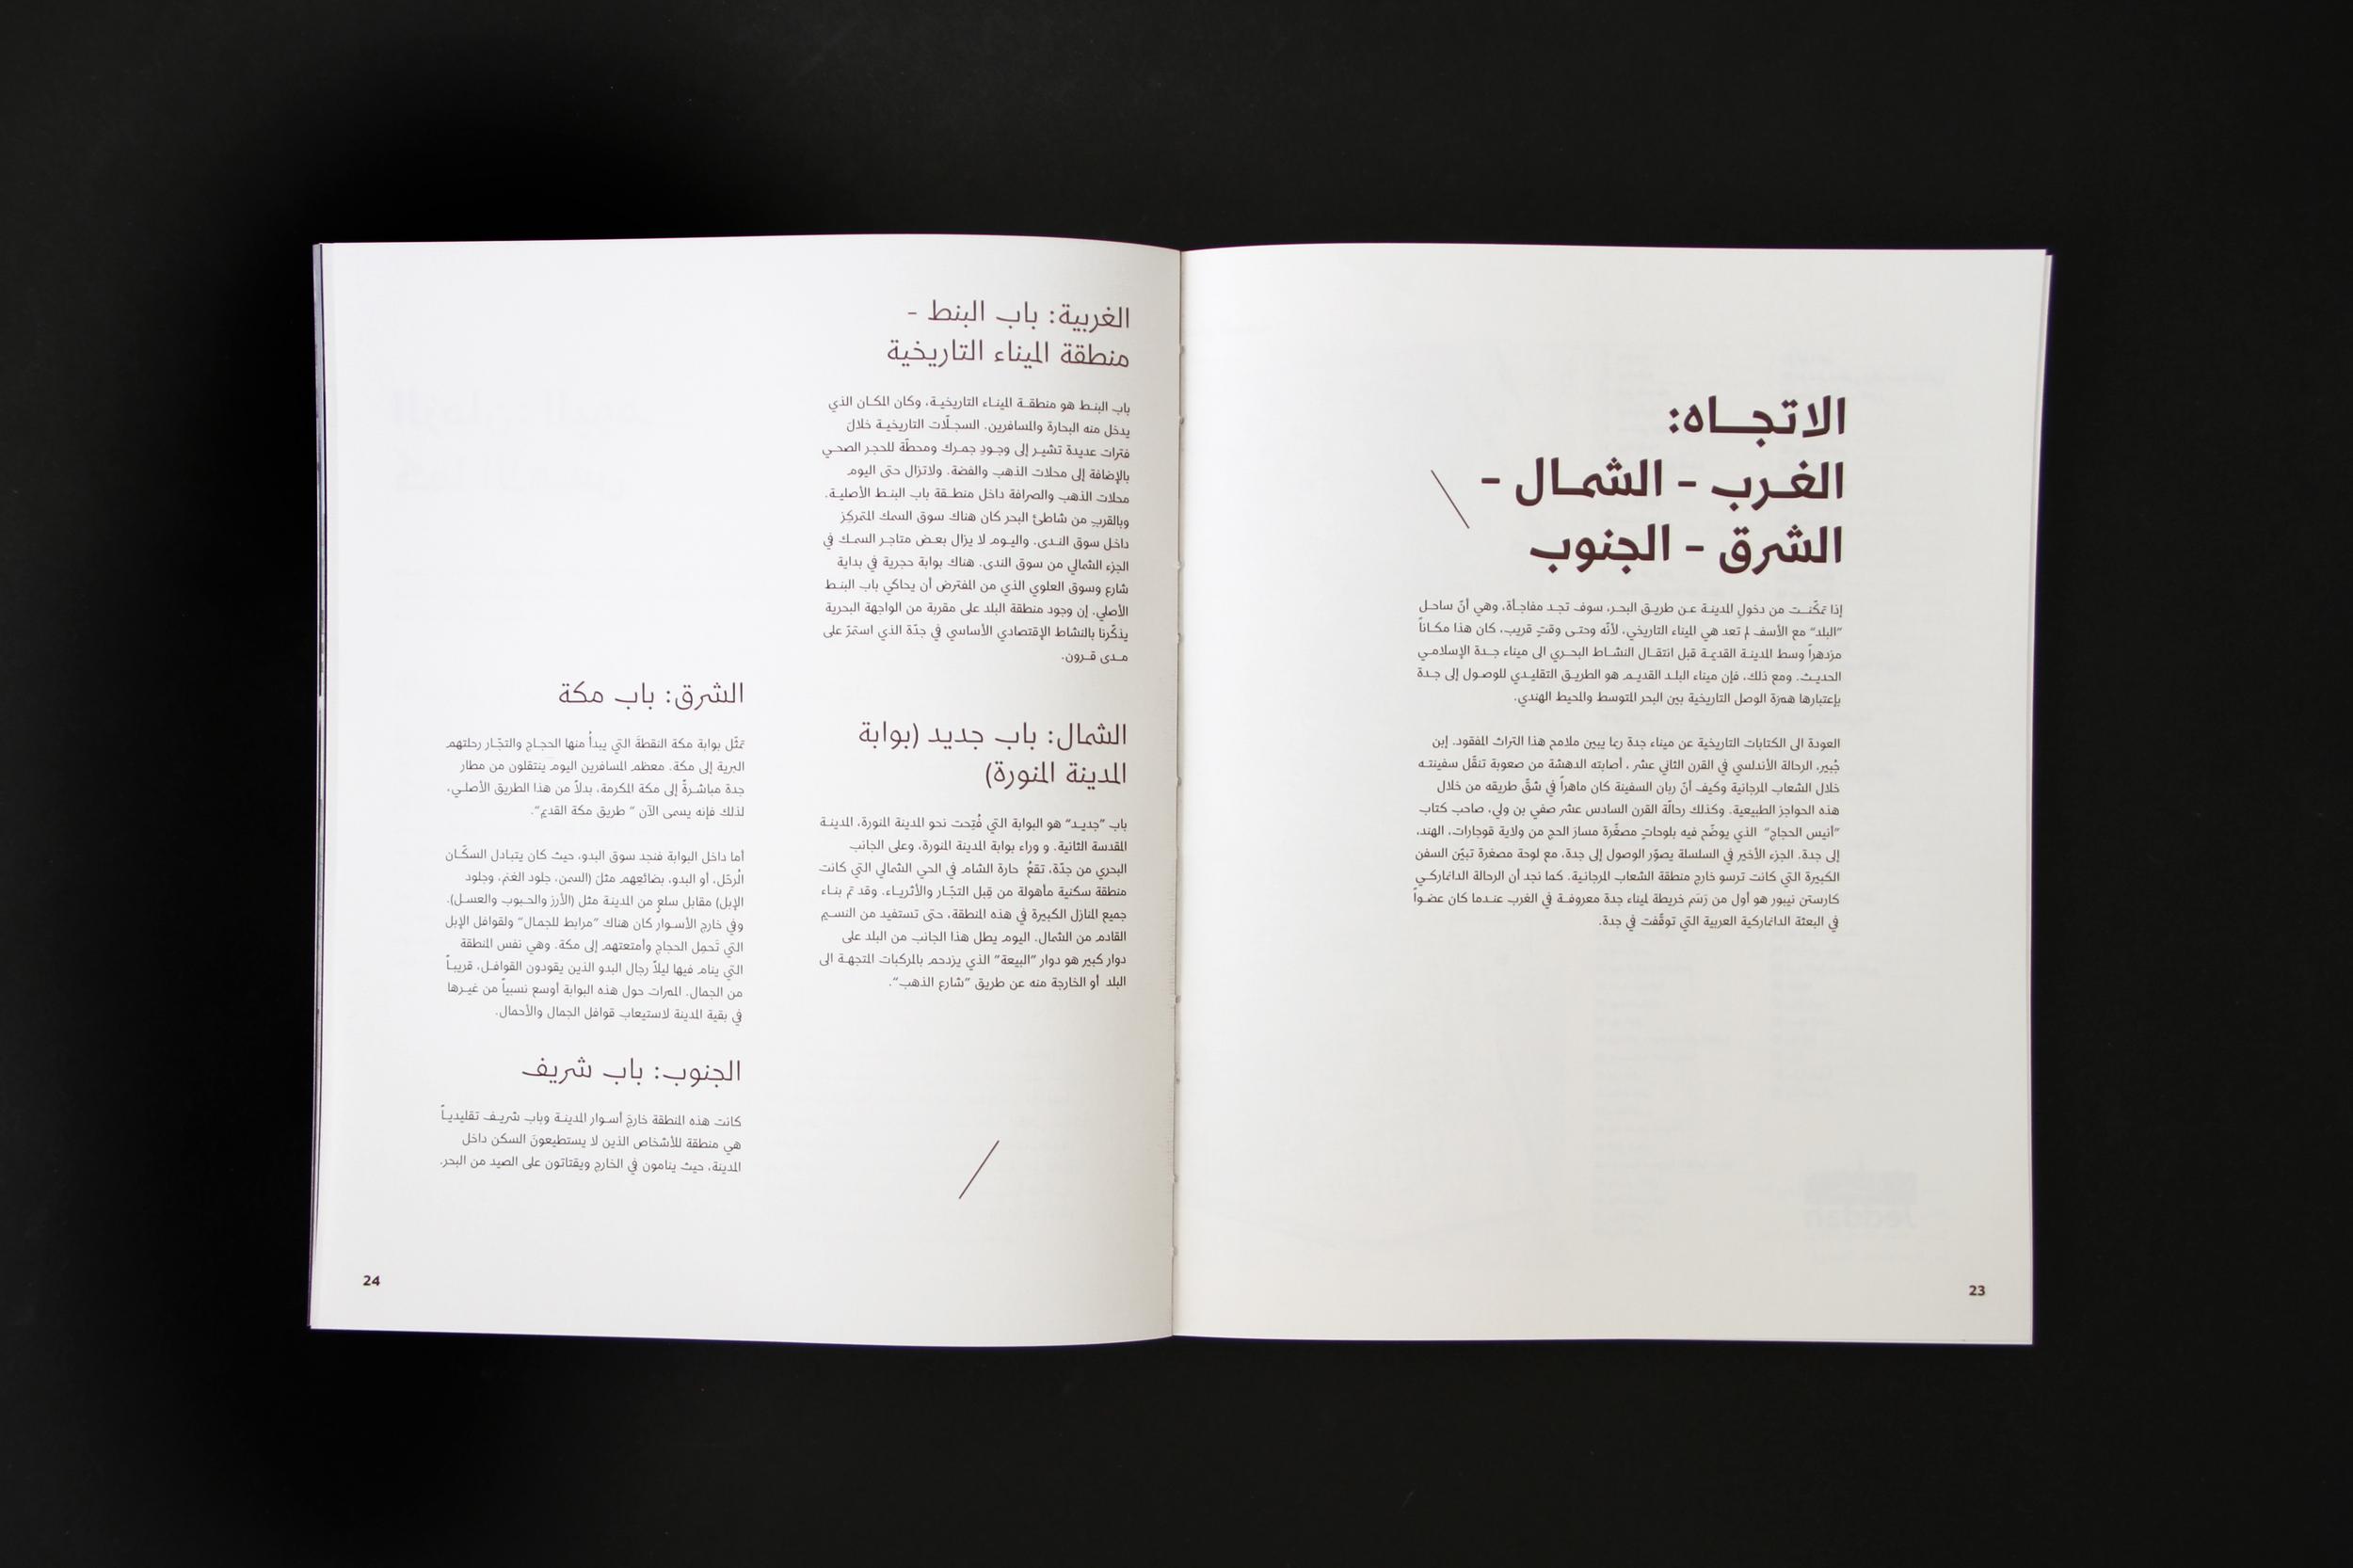 الاتجاه:
الغرب - الشمال -
الشرق - الجنوب
إذا تمكّنت من دخولِ المدينة عن طريق البحر، سوف تجد مفاجأة، وهي أنّ ساحل
"البلد" مع الأسف لم تعد هي الميناء التاريخي، لأنّه وحتى وقتٍ قريب، كان هذا مكاناً
مزدهراً وسط المدينة القديمة قبل انتقال النشاط البحري الى ميناء جدة الإسلامي
الحديث. ومع ذلك، فإن ميناء البلد القديم هو الطريق التقليدي للوصول إلى جدة
بإعتبارها همزة الوصل التاريخية بين البحر المتوسط والمحيط الهندي.
العودة الى الكتابات التاريخية عن ميناء جدة ربما يبين ملامح هذا التراث المفقود. إبن
جُبير، الرحالة الأندلسي في القرن الثاني عشر، أصابته الدهشة من صعوبة تنقّل سفينته
خلال الشعاب المرجانية وكيف أنّ ربان السفينة كان ماهراً في شقّ طريقه من خلال
هذه الحواجز الطبيعية. وكذلك رحالّة القرن السادس عشر صفي بن ولي، صاحب كتاب
"أنيس الحجاج" الذي يوضّح فيه بلوحاتٍ مصغّرة مسارَ الحج من ولاية قوجارات، الهند،
إلى جدة. الجزء الأخير في السلسلة يصوّر الوصول إلى جدة، مع لوحة مصغرة تبيّن السفن
الكبيرة التي كانت ترسو خارج منطقة الشعاب المرجانية. كما نجد أن الرحالة الدانماركي
كارستن نيبور هو أول من رَسَم خريطة لميناء جدة معروفة في الغرب عندما كان عضواً
في البعثة الدانماركية العربية التي توقّفت في جدة.
23
الغربية: باب البنط -
منطقة الميناء التاريخية
باب البنط هو منطقة الميناء التاريخية، وكان المكان الذي
يدخل منه البحارة والمسافرين. السجلّات التاريخية خلالَ
فترات عديدة تشير إلى وجودِ جمرك ومحطّة للحجر الصحي
بالإضافة إلى محلات الذهب والفضة. ولاتزال حتى اليوم
محلات الذهب والصرافة داخل منطقة باب البنط الأصلية.
وبالقربِ من شاطئ البحر كان هناك سوق السمك المتمركِز
داخل سوق الندى. واليوم لا يزال بعض متاجر السمك في
الجزء الشمالي من سوق الندى. هناك بوابة حجرية في بداية
شارع وسوق العلوي الذي من المفترض أن يحاكي باب البنط
الأصلي. إن وجود منطقة البلد على مقربة من الواجهة البحرية
يذكّرنا بالنشاط الإقتصادي الأساسي في جدّة الذي استمرّ على
مدى قرون.
الشمال: باب جديد (بوابة
المدينة المنورة)
باب "جديد" هو البوابة التي فُتِحت نحو المدينة المنورة، المدينة
المقدسة الثانية. و وراء بوابة المدينة المنورة، وعلى الجانب
البحري من جدّة، تقعُ حارة الشام في الحي الشمالي التي كانت
منطقة سكنية مأهولة من قِبل التجّار والأثرياء. وقد تم بناء
جميع المنازل الكبيرة في هذه المنطقة، حتى تستفيد من النسيم
القادم من الشمال. اليوم يطل هذا الجانب من البلد على
دوار كبير هو دوار "البيعة" الذي يزدحم بالمركبات المتجهة الى
البلد أو الخارجة منه عن طريق "شارع الذهب".
الشرق: باب مكة
تمثّل بوابة مكة النقطةَ التي يبدأُ منها الحجاج والتجّار رحلتهم
البرية إلى مكة. معظم المسافرين اليوم ينتقلون من مطار
جدة مباشرةً إلى مكة المكرمة، بدلاً من هذا الطريق الأصلي،
لذلك فإنه يسمى الآن " طريق مكة القديم".
أما داخل البوابة فنجد سوق البدو، حيث كان يتبادل السكّان
الُرحّل، أو البدو، بضائعِهم مثلَ (السمن، جلود الغنم، وجلود
الإبل) مقابل سلعٍ من المدينة مثل (الأرز والحبوب والعسل).
وفي خارج الأسوار كان هناك "مرابط للجمال" ولقوافل الإبل
التي تَحمِل الحجاج وأمتعتهم إلى مكة. وهي نفس المنطقة
التي ينام فيها ليلاً رجال البدو الذين يقودون القوافل، قريباً
من الجمال. الممرات حول هذه البوابة أوسع نسبياً من غيرها
في بقية المدينة لاستيعاب قوافل الجمال والأحمال.
الجنوب: باب شريف
كانت هذه المنطقة خارجَ أسوار المدينة وباب شريف تقليدياً
هي منطقة للأشخاص الذين لا يستطيعونَ السكن داخل
المدينة، حيث ينامون في الخارج ويقتاتون على الصيد من البحر.
24